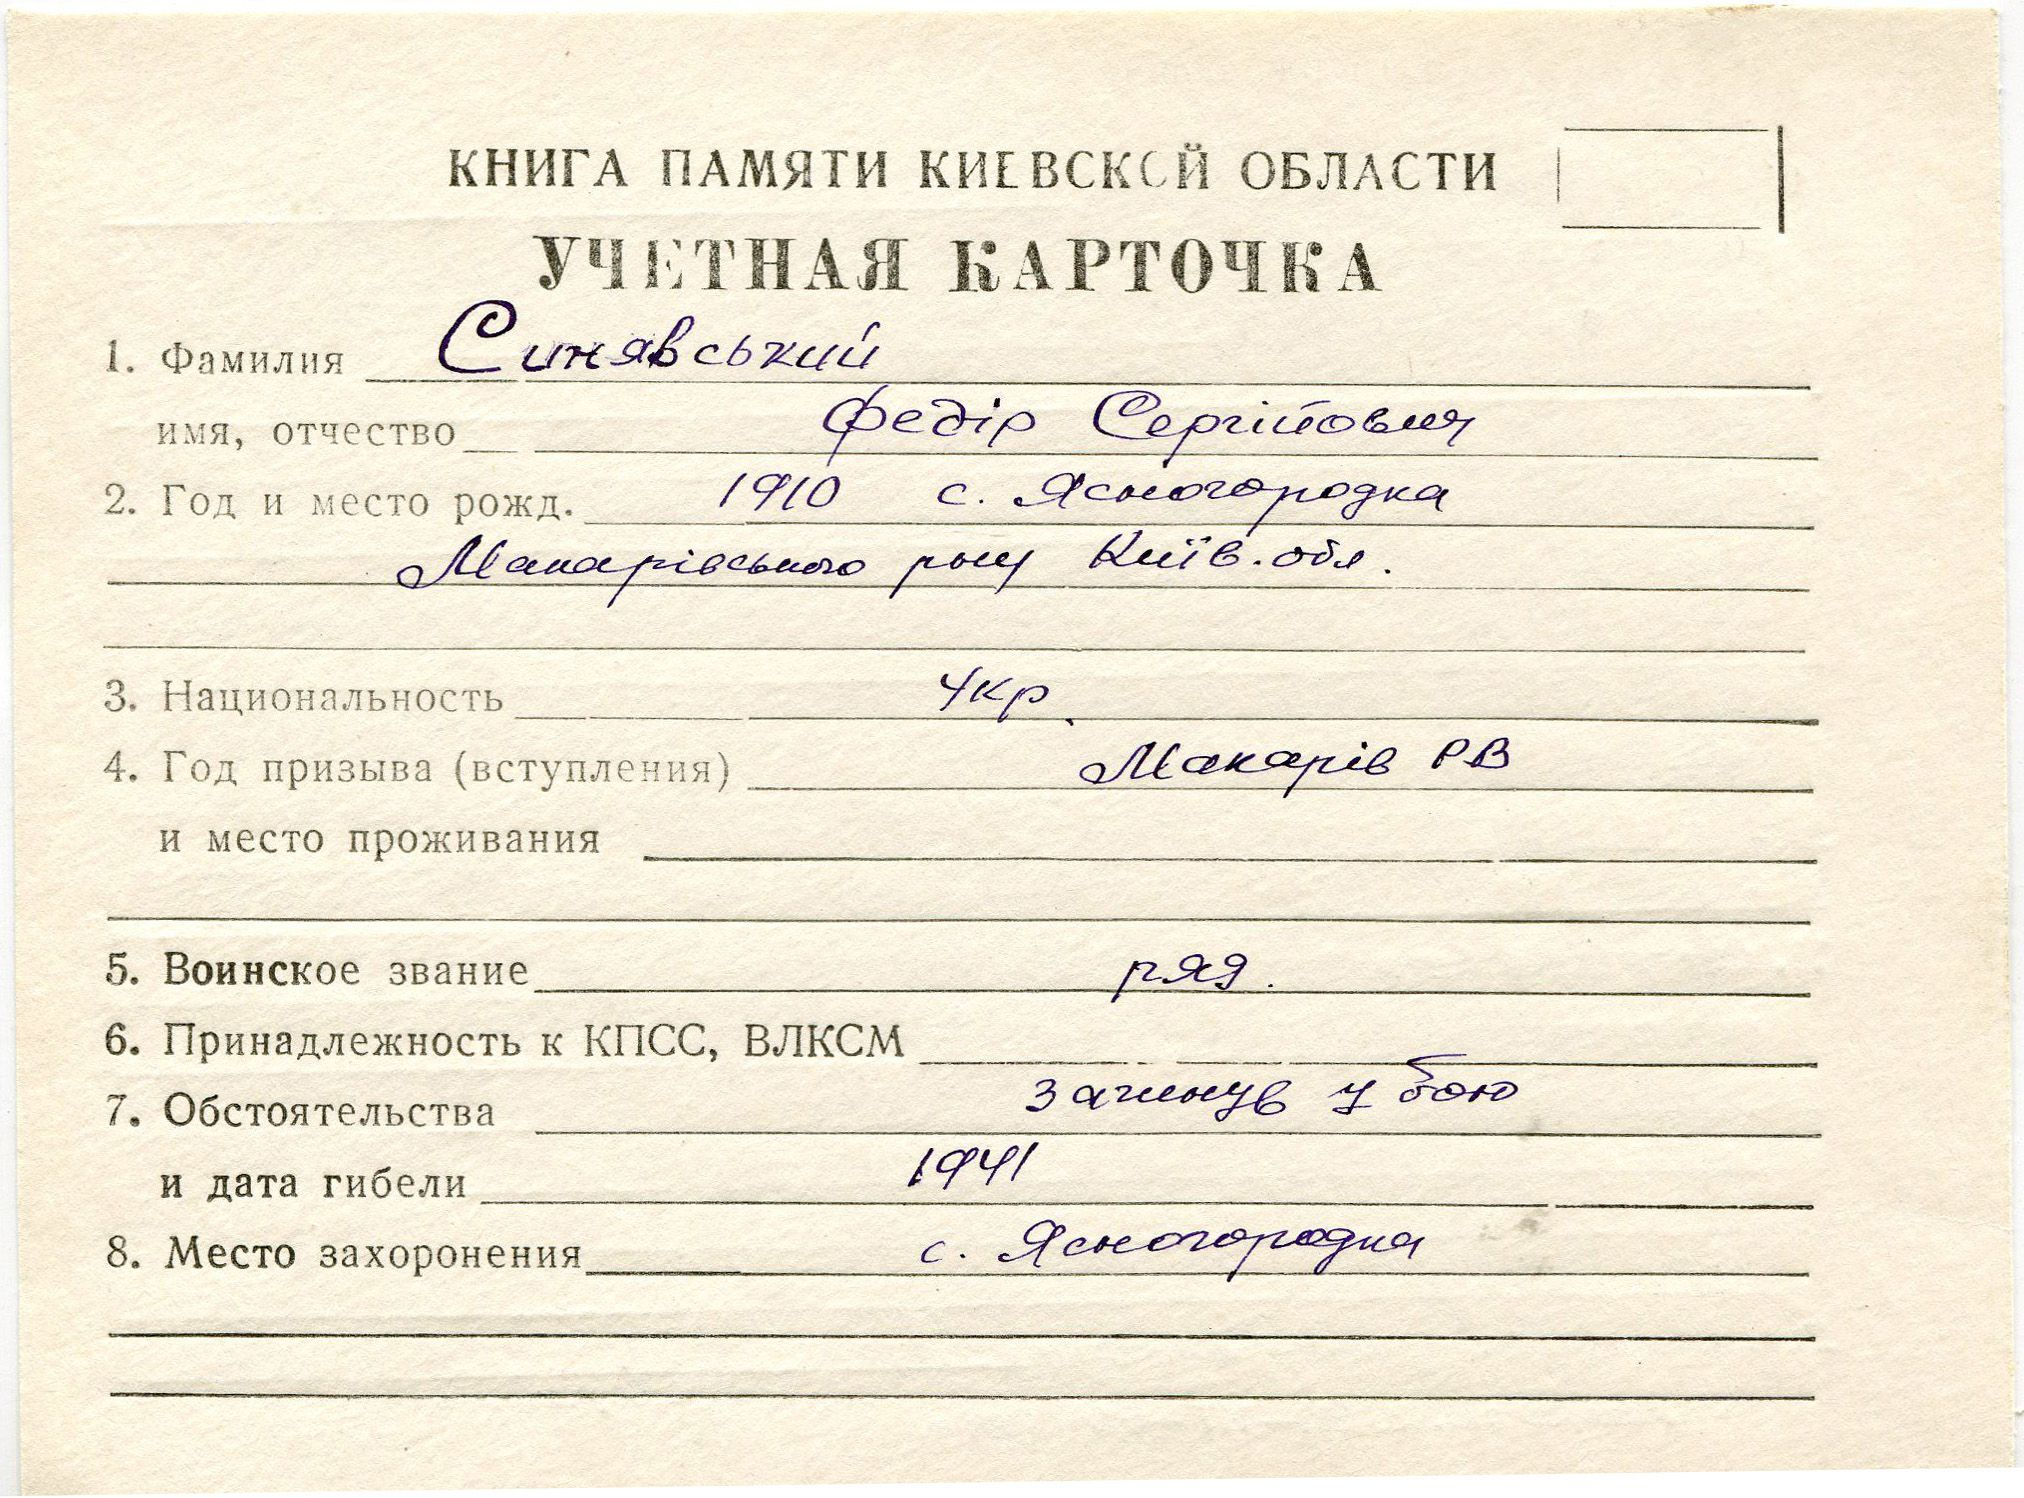 КНИГА ПАМЯТИ КИЕВСКОЙ ОБЛАСТИ
УЧЕТНАЯ КАРТОЧКА
1. Фамилия Синявський
имя, отчество Федір Сергійович
2. Год и место рожд. 1910 с. Ясногородка
Макарівського р-ну Київ. обл.
3. Национальность Укр.
4. Год призыва (вступления) Макарів РВ
и место проживания
5. Воинское звание ряд.
6. Принадлежность к КПСС, ВЛКСМ
7. Обстоятельства загинув у бою
и дата гибели 1941
8. Место захоронения с. Ясногородка